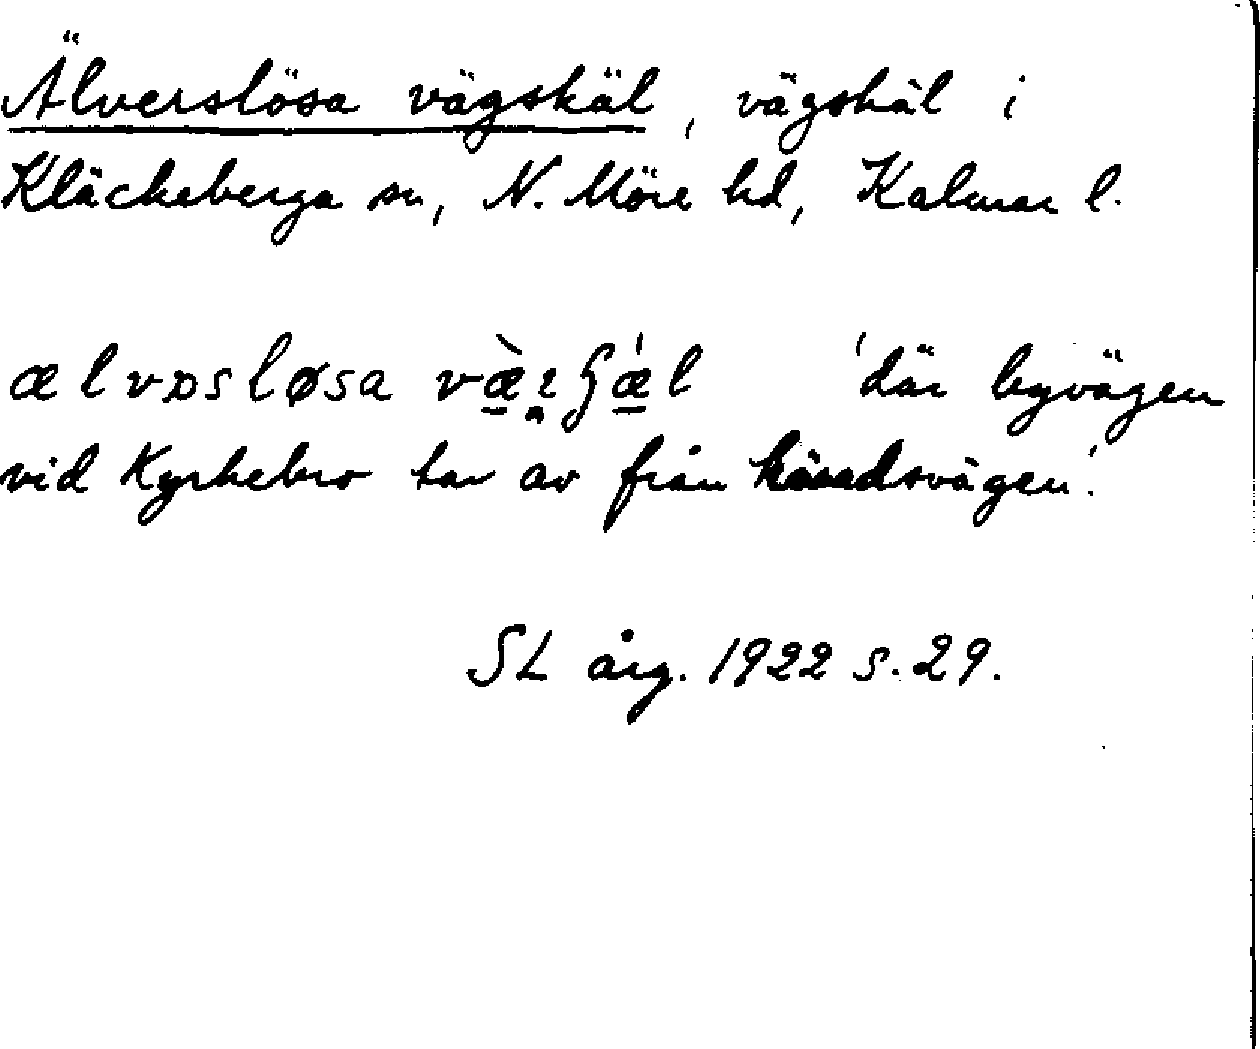 Älverslösa vägskäl, vägskäl i
Kläckeberga sn, N. Möre hd, Kalmar l.
ælvɒsløsa 'där byvägen
vid Kyrkebro tar av från häradsvägen'.
SL årg. 1922 s. 29.